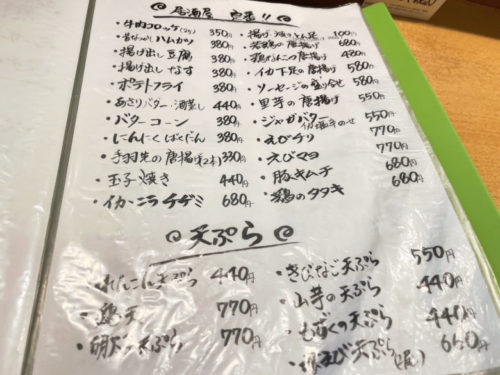 居酒屋 定番!!
・牛肉コロッケ 350円
・昔なつかしハムカツ 380円
・揚げ出し豆腐 380円
・揚げ出し なす 380円
・ポテトフライ 380円
・あさりバター・酒蒸し 440円
・バターコーン 380円
・にんにくばくだん 380円
・手羽先の唐揚 330円
・玉子焼き 440円
・イカ・ニラチヂミ 680円
100円
・若鶏の唐揚げ 680円
の唐揚げ 480円
・イカ下足の唐揚げ 580円
・ソーセージの盛り合せ 580円
・里芋の唐揚げ 550円
・ジャガバター 550円
・えびチリ 770円
・えびマヨ 770円
・豚キムチ 680円
・鶏のタタキ 680円
天ぷら
天ぷら 440円
・鶏天 770円
天ぷら 770円
・きびなご天ぷら 550円
・山芋の天ぷら 440円
・もずくの天ぷら 440円
天ぷら